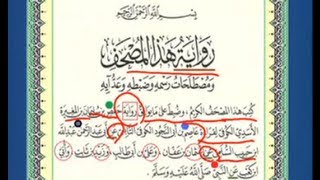 بِسْمِ اللَّهِ الرَّحْمَٰنِ الرَّحِيمِ
رِوَايَةُ هَذَا الْمُصْحَفِ
وَمُصْطَلَحَاتُ رَسْمِهِ وَضَبْطِهِ وَعَدِّ آيِهِ
كُتِبَ هَذَا الْمُصْحَفُ الْكَرِيمُ، وَضُبِطَ عَلَى مَا يُوَافِقُ رِوَايَةَ حَفْصِ بْنِ سُلَيْمَانَ بْنِ الْمُغِيرَةِ
الْأَسَدِيِّ الْكُوفِيِّ لِقِرَاءَةِ عَاصِمِ بْنِ أَبِي النَّجُودِ الْكُوفِيِّ التَّابِعِيِّ عَنْ أَبِي عَبْدِ الرَّحْمَنِ عَبْدِ اللَّهِ
ابْنِ حَبِيبٍ السُّلَمِيِّ عَنْ عُثْمَانَ بْنِ عَفَّانَ وَعَلِيِّ بْنِ أَبِي طَالِبٍ وَزَيْدِ بْنِ ثَابِتٍ وَأُبَيِّ
ابْنِ كَعْبٍ عَنِ النَّبِيِّ صَلَّى اللَّهُ عَلَيْهِ وَسَلَّمَ.